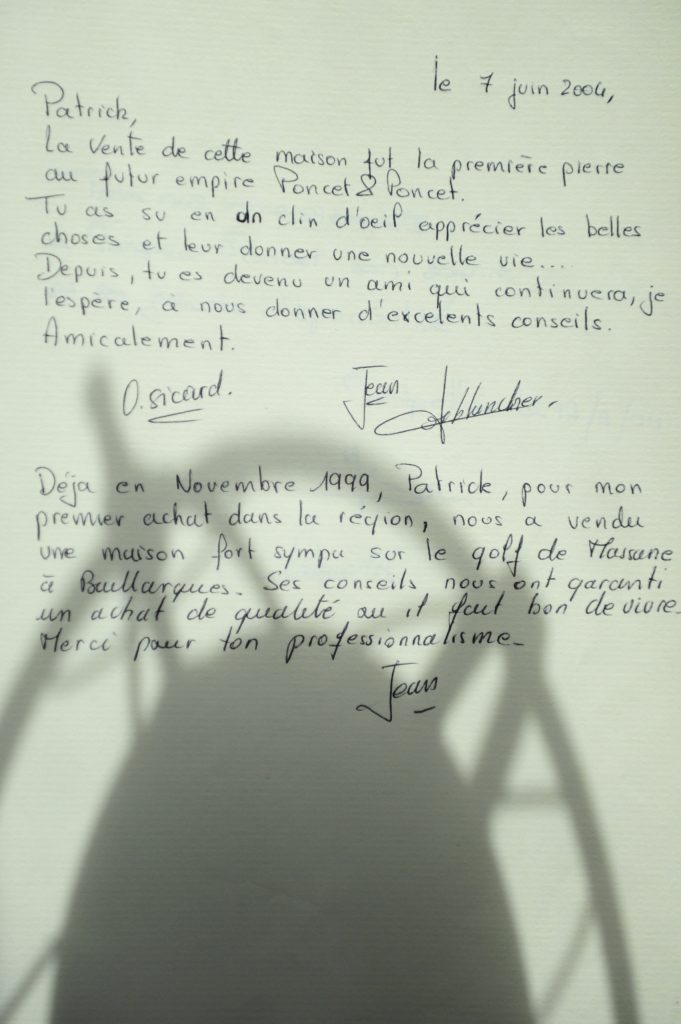 le 7 juin 2004,
Patrick,
La vente de cette maison fut la première pierre
au futur empire Poncet & Poncet.
Tu as su en un clin d'oeil apprécier les belles
choses et leur donner une nouvelle vie...
Depuis, tu es devenu un ami qui continuera, je
l'espère, à nous donner d'excelents conseils.
Amicalement.
O. Sicard. Jean
Déja en Novembre 1999, Patrick, pour mon
premier achat dans la région, nous a vendu
une maison fort sympa sur le golf de Massane
à Baillargues. Ses conseils nous ont garanti
un achat de qualité ou il fait bon de vivre.
Merci pour ton professionnalisme_
Jean